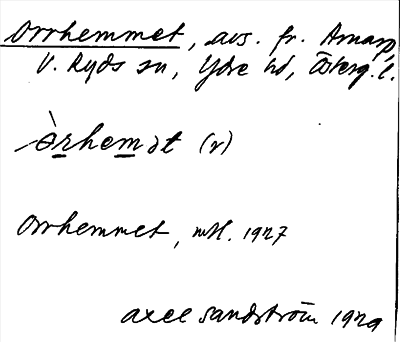 Orrhemmet, avs. fr. Amarp,
V. Ryds sn, Ydre hd, Österg. l.
òrhemət (r)
Orrhemmet, mtl. 1927
Axel Sandström 1929